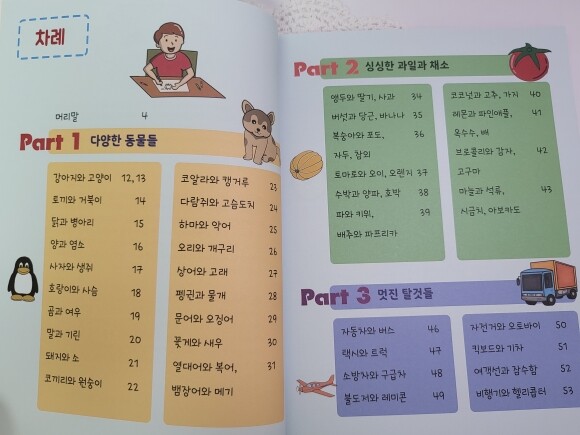 차례
머리말 4
Part 1 다양한 동물들
강아지와 고양이 12, 13
토끼와 거북이 14
닭과 병아리 15
양과 염소 16
사자와 생쥐 17
호랑이와 사슴 18
곰과 여우 19
말과 기린 20
돼지와 소 21
코끼리와 원숭이 22
코알라와 캥거루 23
다람쥐와 고슴도치 24
하마와 악어 25
오리와 개구리 26
상어와 고래 27
펭귄과 물개 28
문어와 오징어 29
꽃게와 새우 30
열대어와 복어, 31
뱀장어와 메기
Part 2 싱싱한 과일과 채소
앵두와 딸기, 사과 34
버섯과 당근, 바나나 35
복숭아와 포도, 36
자두, 참외
토마토와 오이, 오렌지 37
수박과 양파, 호박 38
파와 키위, 39
배추와 파프리카
코코넛과 고추, 가지 40
레몬과 파인애플, 41
옥수수, 배
브로콜리와 감자, 42
고구마
마늘과 석류, 43
시금치, 아보카도
Part 3 멋진 탈것들
자동차와 버스 46
택시와 트럭 47
소방차와 구급차 48
불도저와 레미콘 49
자전거와 오토바이 50
킥보드와 기차 51
여객선과 잠수함 52
비행기와 헬리콥터 53